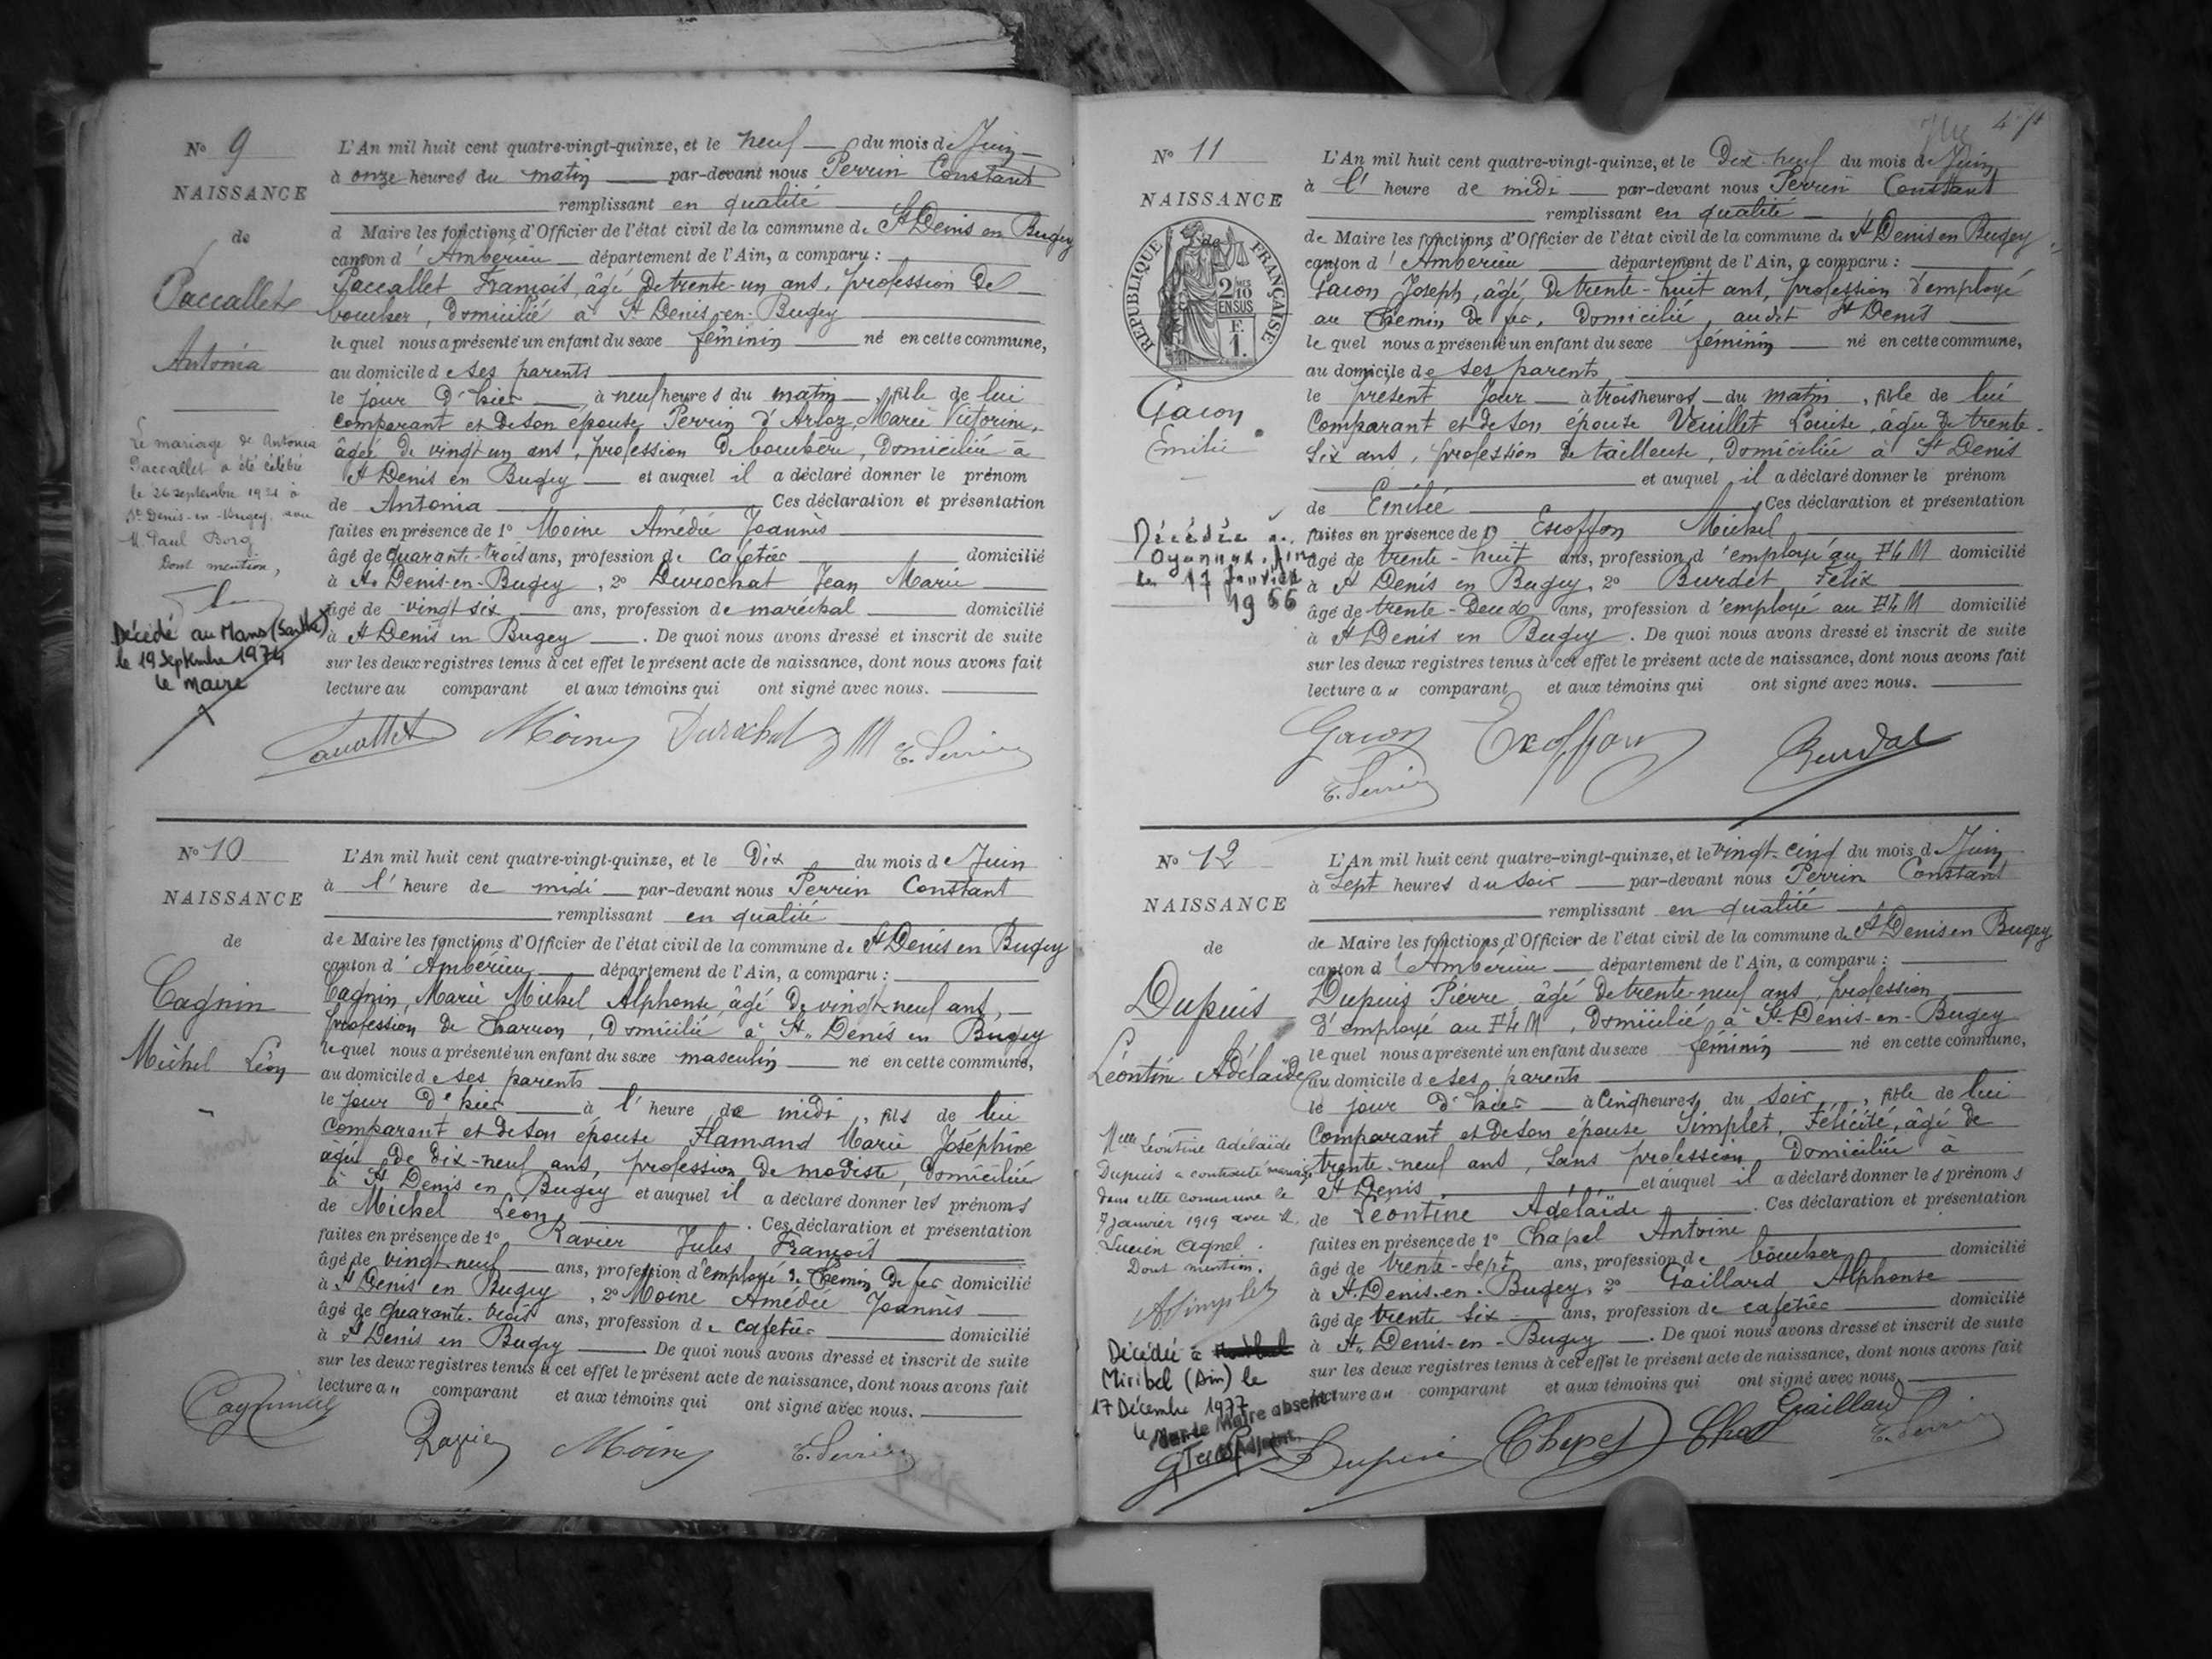 N° 9
NAISSANCE
de
Paccallet
Antonia
Le mariage de Antonia
Paccallet a été célébré
le 26 septembre 1921 à
St Denis-en-Bugey, avec
M. Paul Borg
Dont mention,
Décédé au Mans (Sarthe)
le 19 Septembre 1974
le maire
L'An mil huit cent quatre-vingt-quinze, et le neuf du mois de Juin
à onze heures du matin par-devant nous Perrin Constant
remplissant en qualité
d Maire les fonctions d'Officier de l'état civil de la commune de St Denis en Bugey
canton d'Ambérieu département de l'Ain, a comparu :
Paccallet François, âgé de trente-un ans, profession de
boucher, domicilié à St Denis-en-Bugey
lequel nous a présenté un enfant du sexe féminin né en cette commune,
au domicile de ses parents
le jour d'hier, à neuf heures du matin, fille de lui
comparant et de son épouse Perrin d'Arloz Marie Victorine,
âgée de vingt-un ans, profession de bouchère, domiciliée à
St Denis en Bugey et auquel il a déclaré donner le prénom
de Antonia Ces déclaration et présentation
faites en présence de 1° Moine Amédée Joannès
âgé de quarante-trois ans, profession de cafetier domicilié
à St Denis-en-Bugey, 2° Durochat Jean Marie
âgé de vingt six ans, profession de maréchal domicilié
à St Denis en Bugey. De quoi nous avons dressé et inscrit de suite
sur les deux registres tenus à cet effet le présent acte de naissance, dont nous avons fait
lecture au comparant et aux témoins qui ont signé avec nous.
Paccallet Moine Durochat J M C. Perrin
N° 10
NAISSANCE
de
Cagnin
Michel Léon
L'An mil huit cent quatre-vingt-quinze, et le Dix du mois de Juin
à l'heure de midi par-devant nous Perrin Constant
remplissant en qualité
de Maire les fonctions d'Officier de l'état civil de la commune de St Denis en Bugey
canton d'Ambérieu département de l'Ain, a comparu :
Cagnin, Marie Michel Alphonse, âgé de vingt-neuf ans,
profession de Charron, domicilié à St Denis en Bugey
lequel nous a présenté un enfant du sexe masculin né en cette commune,
au domicile de ses parents
le jour d'hier à l'heure de midi, fils de lui
comparant et de son épouse Flamand Marie Joséphine
âgée de dix-neuf ans, profession de modiste, domiciliée
à St Denis en Bugey et auquel il a déclaré donner les prénoms
de Michel Léon. Ces déclaration et présentation
faites en présence de 1° Ravier Jules François
âgé de vingt-neuf ans, profession d'employé de Chemin de fer domicilié
à St Denis en Bugey, 2° Moine Amédée Joannès
âgé de quarante-trois ans, profession de cafetier domicilié
à St Denis en Bugey De quoi nous avons dressé et inscrit de suite
sur les deux registres tenus à cet effet le présent acte de naissance, dont nous avons fait
lecture au comparant et aux témoins qui ont signé avec nous.
Ravier Moine C. Perrin
N° 11
NAISSANCE
de
REPUBLIQUE FRANÇAISE
2/10
EN SUS
F.
1.
Gacon
Emilie
Décédée à
Oyonnax, Ain
le 17 Janvier
1966
L'An mil huit cent quatre-vingt-quinze, et le Dix-neuf du mois de Juin
à l'heure de midi par-devant nous Perrin Constant
remplissant en qualité
de Maire les fonctions d'Officier de l'état civil de la commune de St Denis en Bugey
canton d'Ambérieu département de l'Ain, a comparu :
Gacon Joseph, âgé de trente-huit ans, profession d'employé
au Chemin de fer, domicilié, audit St Denis
lequel nous a présenté un enfant du sexe féminin né en cette commune,
au domicile de ses parents
le présent Jour à trois heures du matin, fille de lui
comparant et de son épouse Veuillet Louise, âgée de trente-
six ans, profession de tailleuse, domiciliée à St Denis
et auquel il a déclaré donner le prénom
de Emilie Ces déclaration et présentation
faites en présence de 1° Escoffon Michel
âgé de trente-huit ans, profession d'employé au PLM domicilié
à St Denis en Bugey, 2° Burdet Félix
âgé de trente-deux ans, profession d'employé au PLM domicilié
à St Denis en Bugey. De quoi nous avons dressé et inscrit de suite
sur les deux registres tenus à cet effet le présent acte de naissance, dont nous avons fait
lecture au comparant et aux témoins qui ont signé avec nous.
Gacon Excoffon
C. Perrin
N° 12
NAISSANCE
de
Dupuis
Léontine Adélaïde
Melle Léontine Adélaïde
Dupuis a contracté mariage
dans cette commune le
7 janvier 1919 avec M.
Lucien Agnel.
Dont mention.
Décédée à
Miribel (Ain) le
17 Décembre 1977
le Maire absent
L'An mil huit cent quatre-vingt-quinze, et le vingt-cinq du mois de Juin
à sept heures du soir par-devant nous Perrin Constant
remplissant en qualité
de Maire les fonctions d'Officier de l'état civil de la commune de St Denis en Bugey
canton d'Ambérieu département de l'Ain, a comparu :
Dupuis Pierre, âgé de trente-neuf ans, profession
d'employé au PLM, domicilié à St Denis-en-Bugey
lequel nous a présenté un enfant du sexe féminin né en cette commune,
au domicile de ses parents
le jour d'hier à cinq heures du soir, fille de lui
comparant et de son épouse Simplet, Félicité, âgé de
trente-neuf ans, sans profession, domiciliée à
St Denis, et auquel il a déclaré donner les prénoms
de Léontine Adélaïde. Ces déclaration et présentation
faites en présence de 1° Chapel Antoine
âgé de trente-sept ans, profession de boucher domicilié
à St Denis-en-Bugey, 2° Gaillard Alphonse
âgé de trente six ans, profession de cafetier domicilié
à St Denis-en-Bugey. De quoi nous avons dressé et inscrit de suite
sur les deux registres tenus à cet effet le présent acte de naissance, dont nous avons fait
lecture au comparant et aux témoins qui ont signé avec nous.
Gaillard
C. Perrin